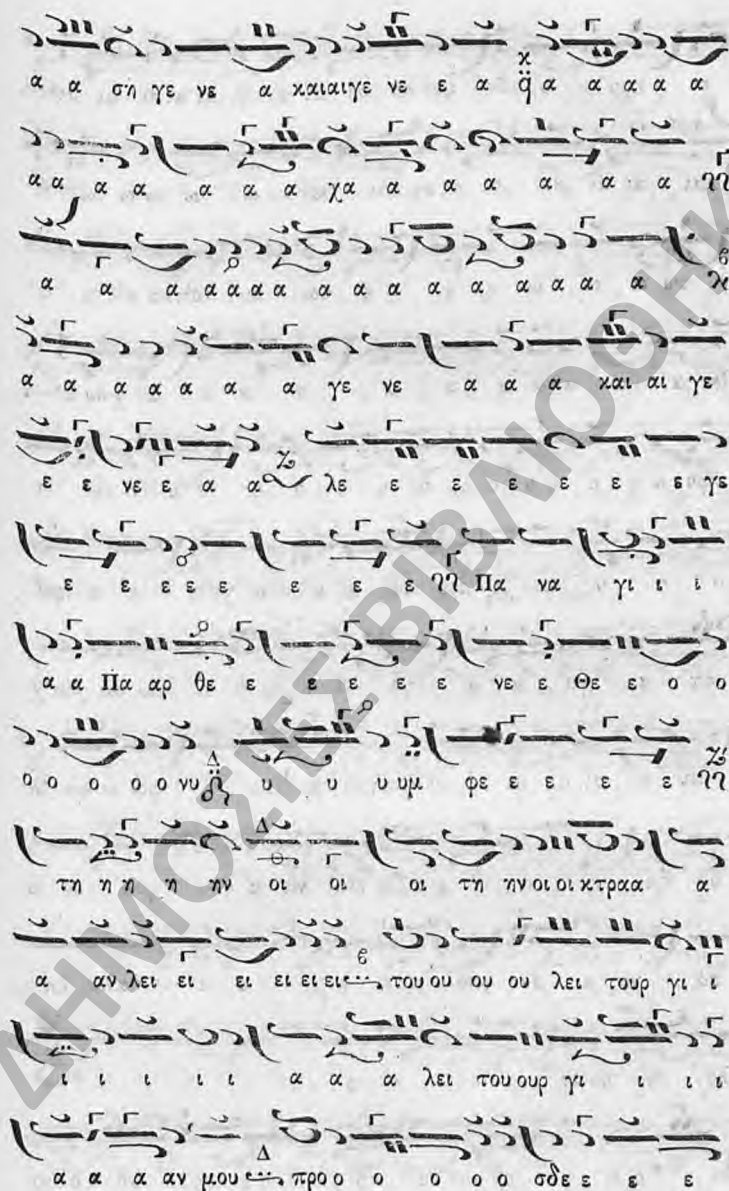 α α ση γε νε α καιαιγε νε ε α α α α α α
α α α α α α α χα α α α α α α
α α α α α α α α α α α α α α α α α
α α α α α α α α γε νε α α α και αι γε
ε ε νε ε α α λε ε ε ε ε ε ε ε γε
ε ε ε ε ε ε ε ε ε Πα να γι ι ι
α α Πα αρ θε ε ε ε ε ε νε ε Θε ε ο ο
ο ο ο ο ο νυ υ υ υ υμ φε ε ε ε ε
τη η η η ην οι οι οι τη ην οι οι κτραα α
α αν λει ει ει ει ει ει του ου ου ου λει τουρ γι ι
ι ι ι ι ι α α α λει του ουρ γι ι ι ι
α α α αν μου προ ο ο ο ο ο σδε ε ε ε
ΔΗΜΟΣΙΕΣ ΒΙΒΛΙΟΘΗΚ